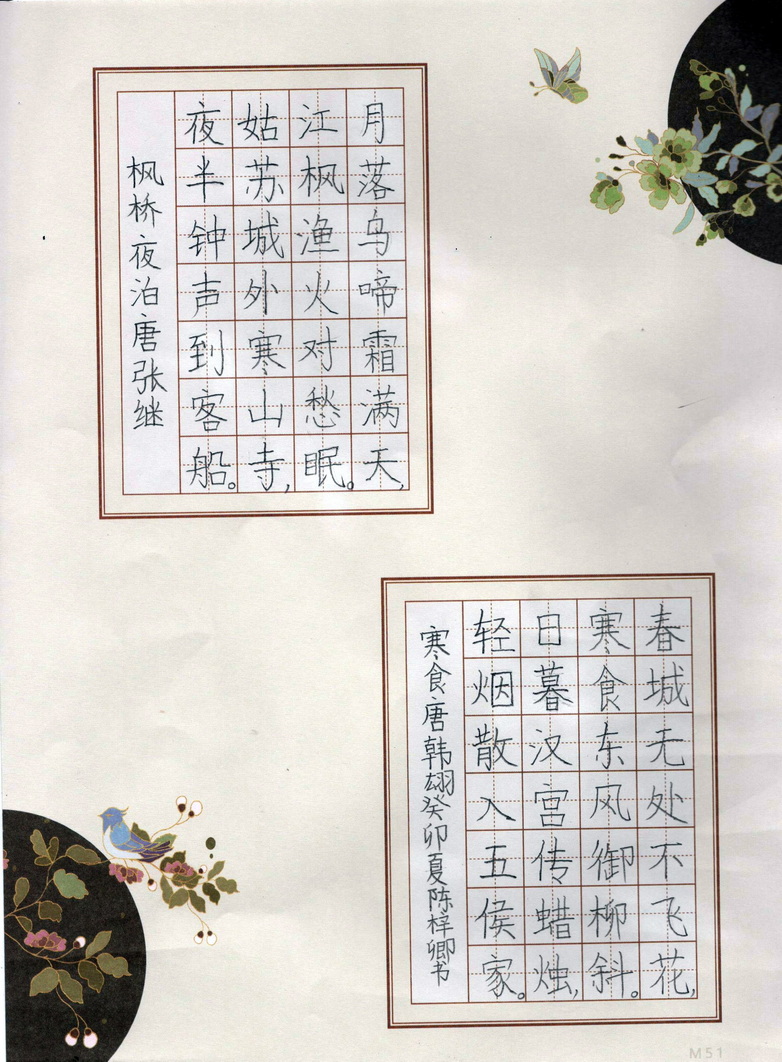 月落乌啼霜满天,
江枫渔火对愁眠。
姑苏城外寒山寺,
夜半钟声到客船。
枫桥夜泊唐张继
春城无处不飞花,
寒食东风御柳斜。
日暮汉宫传蜡烛,
轻烟散入五侯家。
寒食唐韩翃癸卯夏陈梓卿书
M51